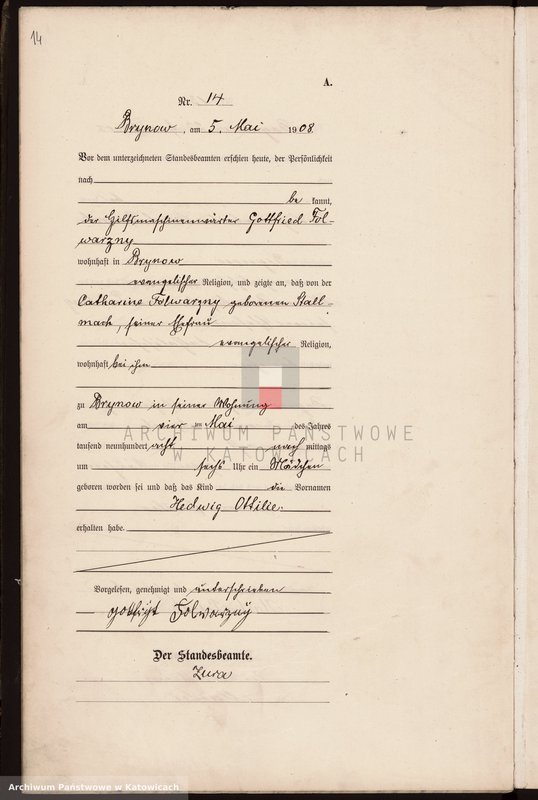 14
A.
Nr. 14
Brynow, am 5. Mai 1908
Vor dem unterzeichneten Standesbeamten erschien heute, der Persönlichkeit
nach
be kannt,
der Hilfsmaschinenwärter Gottfried Fol-
warzny
wohnhaft in Brynow
evangelischer Religion, und zeigte an, daß von der
Catharine Folwarzny geborenen Stall-
mach, seiner Ehefrau
evangelischer Religion,
wohnhaft bei ihm
zu Brynow in seiner Wohnung
am vier ten Mai des Jahres
tausend neunhundert acht nach mittags
um sechs Uhr ein Mädchen
geboren worden sei und daß das Kind die Vornamen
Hedwig Ottilie
erhalten habe.
Vorgelesen, genehmigt und unterschrieben
Folwarzny
Der Standesbeamte.
Zura
ARCHIWUM PAŃSTWOWE
W KATOWICACH
Archiwum Państwowe w Katowicach